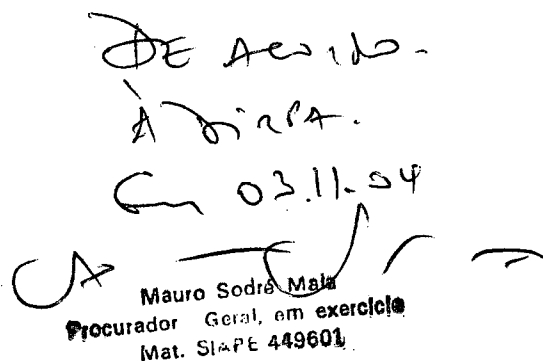 DE Acordo.
À DIRPA.
Em 03.11.04
Mauro Sodré Maia
Procurador Geral, em exercício
Mat. SIAPE 449601